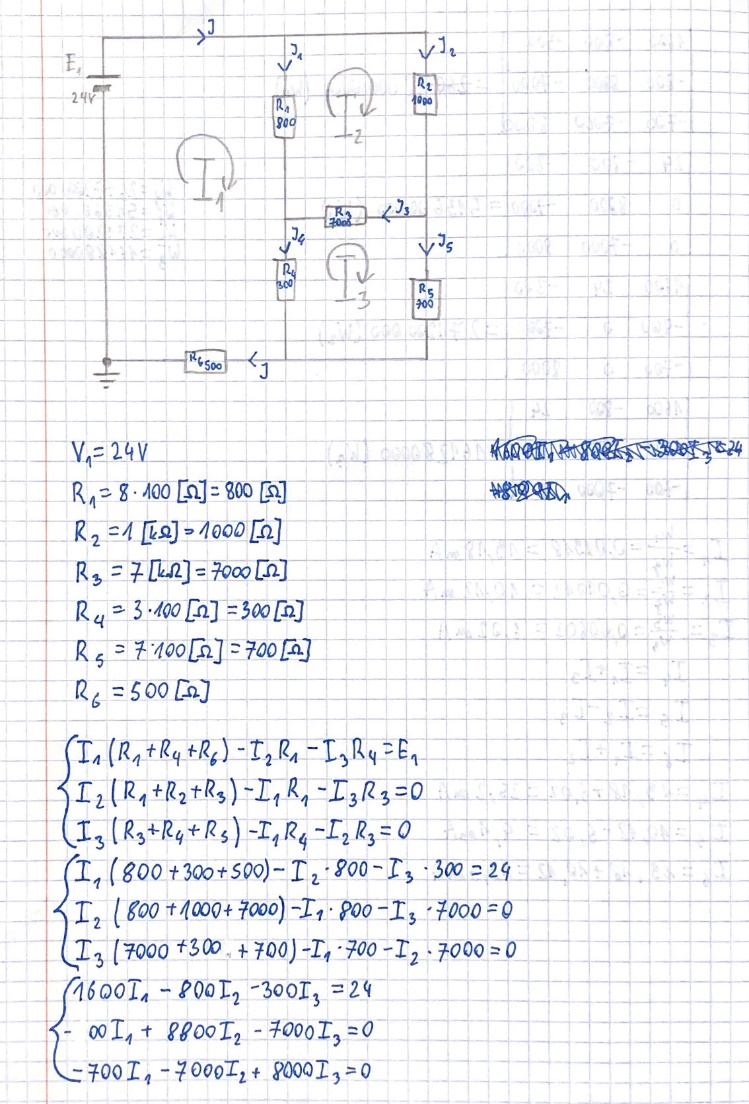 J
J₁
J₂
E₁
24V
R₁
800
R₂
1000
I₂
I₁
R₃
7000
J₃
J₄
J₅
R₄
300
I₃
R₅
700
R₆ 500
J
V₁ = 24V
R₁ = 8·100 [Ω] = 800 [Ω]
R₂ = 1 [kΩ] = 1000 [Ω]
R₃ = 7 [kΩ] = 7000 [Ω]
R₄ = 3·100 [Ω] = 300 [Ω]
R₅ = 7·100 [Ω] = 700 [Ω]
R₆ = 500 [Ω]
I₁ (R₁ + R₄ + R₆) - I₂ R₁ - I₃ R₄ = E₁
I₂ (R₁ + R₂ + R₃) - I₁ R₁ - I₃ R₃ = 0
I₃ (R₃ + R₄ + R₅) - I₁ R₄ - I₂ R₃ = 0
I₁ (800 + 300 + 500) - I₂ · 800 - I₃ · 300 = 24
I₂ (800 + 1000 + 7000) - I₁ · 800 - I₃ · 7000 = 0
I₃ (7000 + 300 + 700) - I₁ · 700 - I₂ · 7000 = 0
1600 I₁ - 800 I₂ - 300 I₃ = 24
- 00 I₁ + 8800 I₂ - 7000 I₃ = 0
-700 I₁ - 7000 I₂ + 8000 I₃ = 0